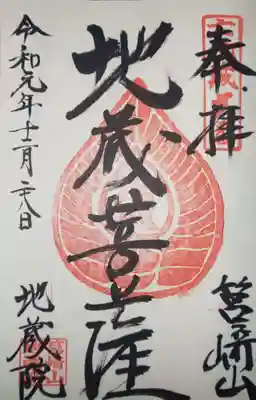 奉拝
筥崎山
地蔵菩薩
令和元年十一月二八日
地蔵院